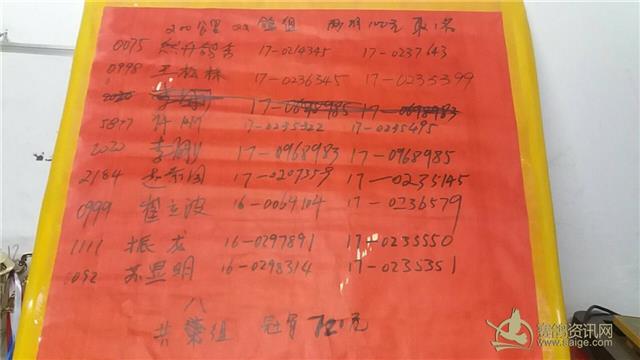 200公里 双鸽组 两羽100元 取1名
0075 17-0214345 17-0237643
0998 王松林 17-0236345 17-0235399
2020 李刚 17-0698985 17-0698983
5877 许刚 17-0235322 17-0235495
2020 李刚 17-0968983 17-0968985
2184 赵荣国 17-0207359 17-0235145
0999 崔立波 16-0069104 17-0236579
1111 振龙 16-0297891 17-0235550
0092 苏显明 16-0298314 17-0235351
八
共 组 冠军 720元
赛鸽资讯网
www.saige.com